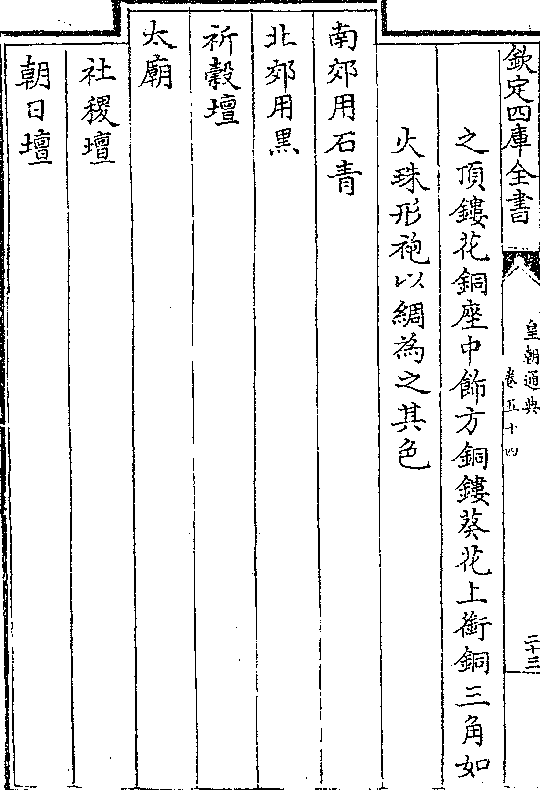 欽定四庫全書
皇朝通典
卷五十四
二十三
之頂鏤花銅座中飾方銅鏤葵花上銜銅三角如
火珠形袍以綢為之其色
南郊用石青
北郊用黑
祈穀壇
太廟
社稷壇
朝日壇